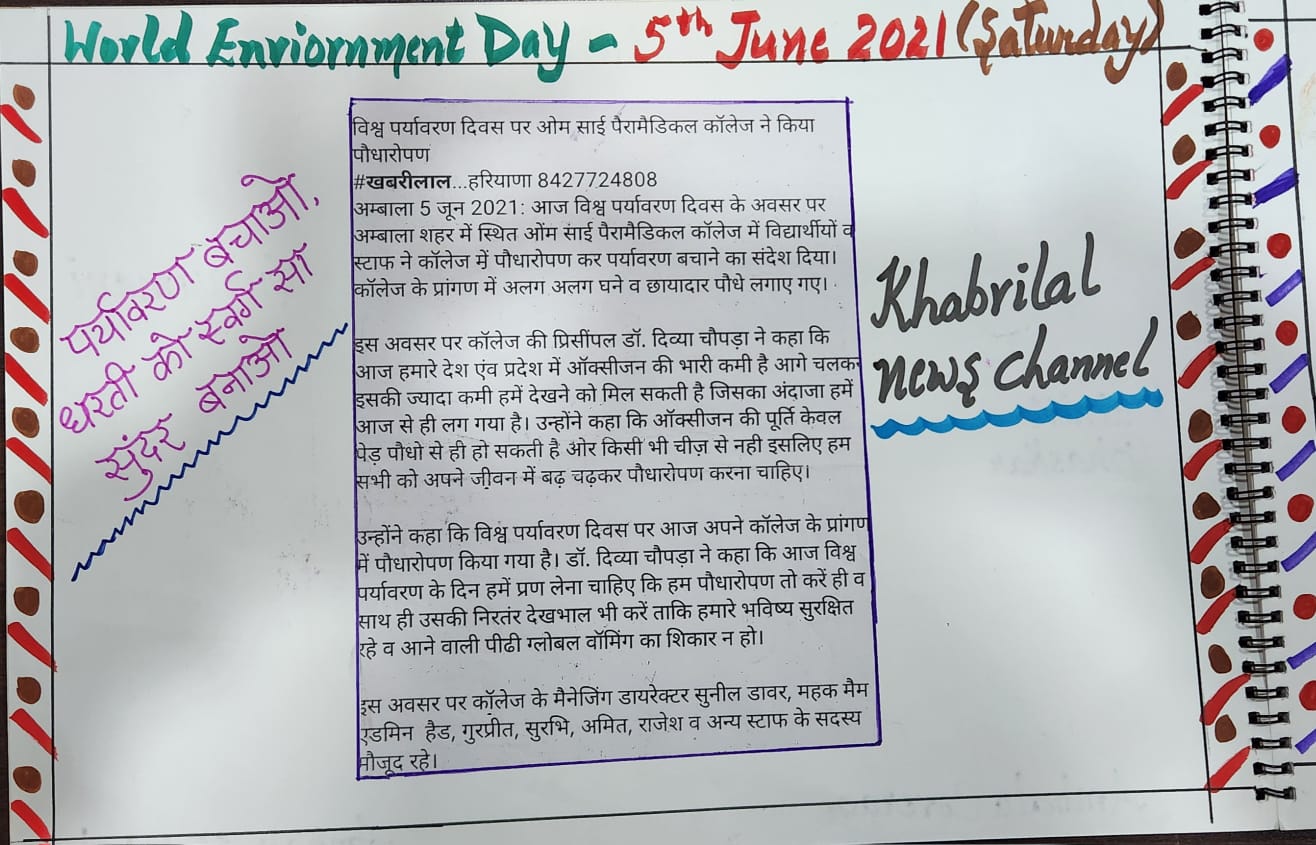 World Enviornment Day - 5th June 2021 (Saturday)
पर्यावरण बचाओ,
धरती को स्वर्ग सा
सुंदर बनाओ
विश्व पर्यावरण दिवस पर ओम साई पैरामैडिकल कॉलेज ने किया
पौधारोपण
#खबरीलाल...हरियाणा 8427724808
अम्बाला 5 जून 2021: आज विश्व पर्यावरण दिवस के अवसर पर
अम्बाला शहर में स्थित ओंम साई पैरामैडिकल कॉलेज में विद्यार्थीयों व
स्टाफ ने कॉलेज में पौधारोपण कर पर्यावरण बचाने का संदेश दिया।
कॉलेज के प्रांगण में अलग अलग घने व छायादार पौधे लगाए गए।
इस अवसर पर कॉलेज की प्रिसींपल डॉ. दिव्या चौपड़ा ने कहा कि
आज हमारे देश एंव प्रदेश में ऑक्सीजन की भारी कमी है आगे चलकर
इसकी ज्यादा कमी हमें देखने को मिल सकती है जिसका अंदाजा हमें
आज से ही लग गया है। उन्होंने कहा कि ऑक्सीजन की पूर्ति केवल
पेड़ पौधो से ही हो सकती है ओर किसी भी चीज़ से नही इसलिए हम
सभी को अपने जीवन में बढ़ चढ़कर पौधारोपण करना चाहिए।
उन्होंने कहा कि विश्व पर्यावरण दिवस पर आज अपने कॉलेज के प्रांगण
में पौधारोपण किया गया है। डॉ. दिव्या चौपड़ा ने कहा कि आज विश्व
पर्यावरण के दिन हमें प्रण लेना चाहिए कि हम पौधारोपण तो करें ही व
साथ ही उसकी निरतंर देखभाल भी करें ताकि हमारे भविष्य सुरक्षित
रहे व आने वाली पीढी ग्लोबल वॉमिंग का शिकार न हो।
इस अवसर पर कॉलेज के मैनेजिंग डायरेक्टर सुनील डावर, महक मैम
एडमिन हैड, गुरप्रीत, सुरभि, अमित, राजेश व अन्य स्टाफ के सदस्य
मौजूद रहे।
Khabrilal
News Channel